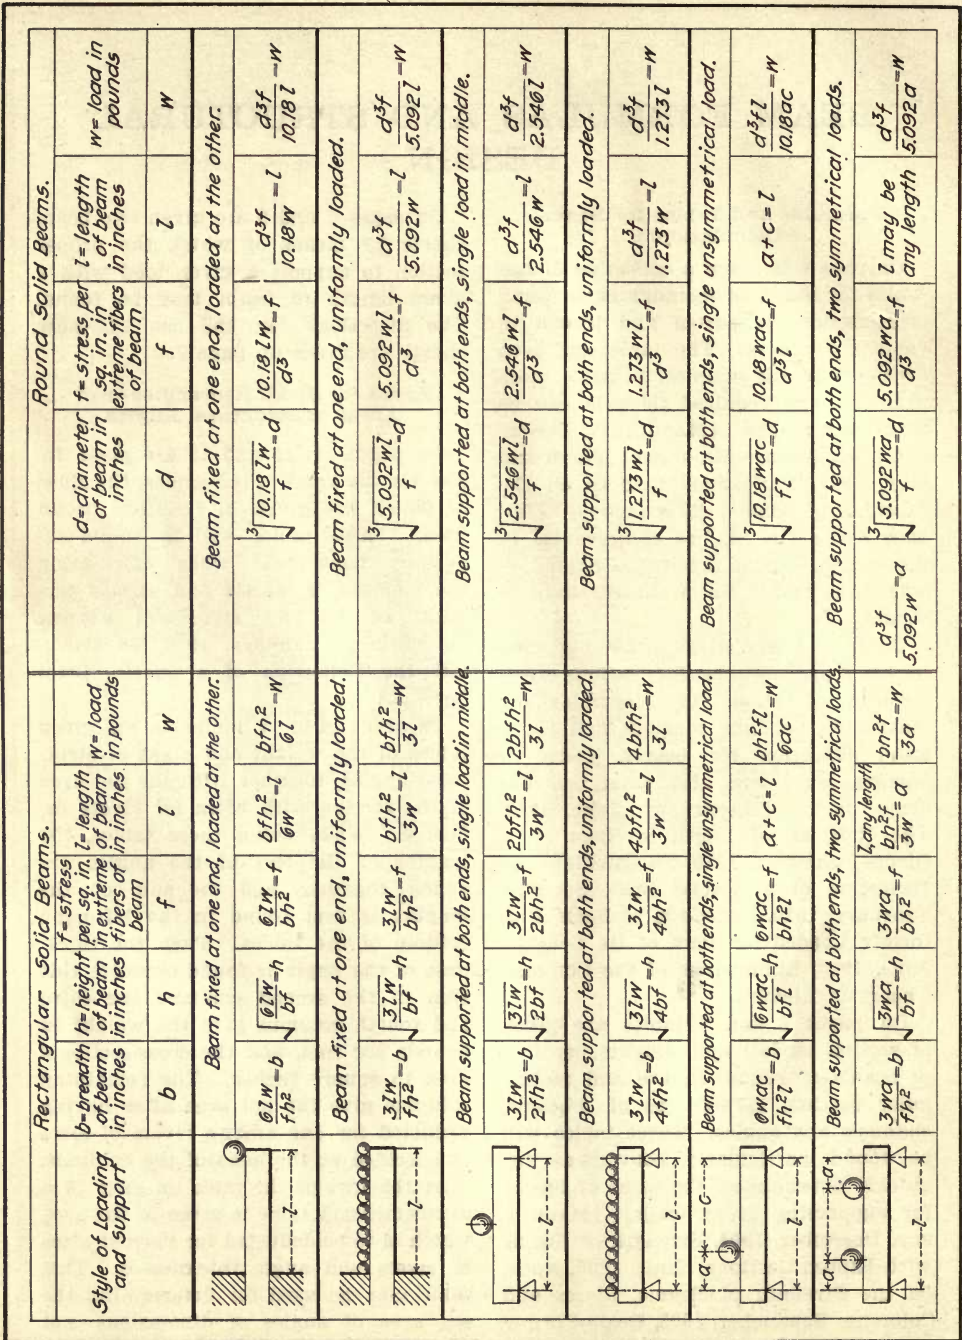 Rectangular Solid Beams.
Round Solid Beams.
Style of Loading
and Support
b=breadth
of beam
in inches
h=height
of beam
in inches
f=stress
per sq. in.
in extreme
fibers of
beam
l=length
of beam
in inches
w=load
in pounds
d=diameter
of beam in
inches
f=stress per
sq. in. in
extreme fibers
of beam
l=length
of beam
in inches
w=load in
pounds
b h f l w d f l w
Beam fixed at one end, loaded at the other.
Beam fixed at one end, loaded at the other.
l
6lw/fh²=b √(6lw/bf)=h 6lw/bh²=f bfh²/6w=l bfh²/6l=w ³√(10.18lw/f)=d 10.18lw/d³=f d³f/10.18w=l d³f/10.18l=w
Beam fixed at one end, uniformly loaded.
Beam fixed at one end, uniformly loaded.
l
3lw/fh²=b √(3lw/bf)=h 3lw/bh²=f bfh²/3w=l bfh²/3l=w ³√(5.092wl/f)=d 5.092wl/d³=f d³f/5.092w=l d³f/5.092l=w
Beam supported at both ends, single load in middle.
Beam supported at both ends, single load in middle.
l
3lw/2fh²=b √(3lw/2bf)=h 3lw/2bh²=f 2bfh²/3w=l 2bfh²/3l=w ³√(2.546wl/f)=d 2.546wl/d³=f d³f/2.546w=l d³f/2.546l=w
Beam supported at both ends, uniformly loaded.
Beam supported at both ends, uniformly loaded.
l
3lw/4fh²=b √(3lw/4bf)=h 3lw/4bh²=f 4bfh²/3w=l 4bfh²/3l=w ³√(1.273wl/f)=d 1.273wl/d³=f d³f/1.273w=l d³f/1.273l=w
Beam supported at both ends, single unsymmetrical load.
Beam supported at both ends, single unsymmetrical load.
a c
l
6wac/fh²l=b √(6wac/bfl)=h 6wac/bh²l=f a+c=l bh²fl/6ac=w ³√(10.18wac/fl)=d 10.18wac/d³l=f a+c=l d³fl/10.18ac=w
Beam supported at both ends, two symmetrical loads.
Beam supported at both ends, two symmetrical loads.
a a
l
3wa/fh²=b √(3wa/bf)=h 3wa/bh²=f l any length bh²f/3w=a bh²f/3a=w d³f/5.092w=a ³√(5.092wa/f)=d 5.092wa/d³=f l may be any length d³f/5.092a=w